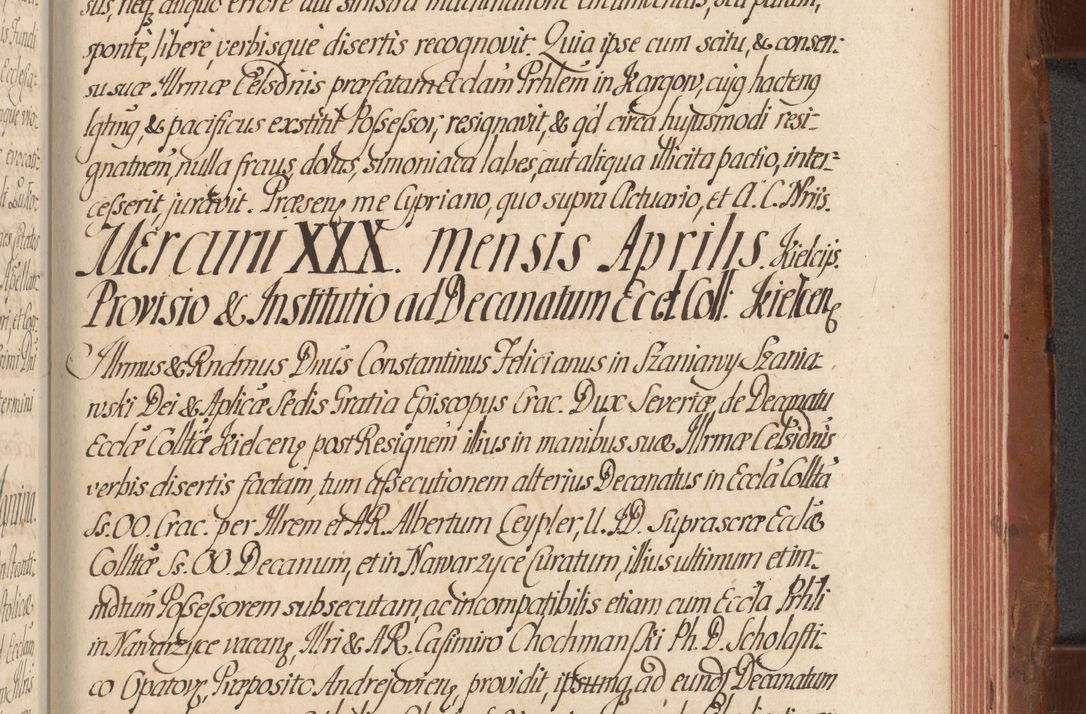 sus, neqꝫ aliquo errore aut sinistra machinatione circumventus, sed palam,
sponte, libere, verbisque disertis recognovit. Quia ipse cum scitu, & consen-
su suæ Illrmæ Celsdnis præfatam Ecclam Prhlem in Kargow, cujq hacteng
lgtmg, & pacificus exstitit Possessor, resignavit, & qd circa hujusmodi resi-
gnatnem, nulla fraus, dolus, simoniaca labes, aut aliqua illicita pactio, inter-
cesserit, juravit. Præsenę me Cypriano, quo supra Actuario, et A. C. Nriis.
Mercurii XXX. mensis Aprilis. Kielciis.
Provisio & Institutio ad Decanatum Eccl Coll: Kielcenę
Illrmus & Rndmus Dnus Constantinus Felicianus in Szaniawy Szania-
wski Dei & Aplicæ Sedis Gratia Episcopus Crac. Dux Severiæ, de Decanatu
Ecclæ Colltæ Kielcenę post Resignem illius in manibus suæ Illrmæ Celsidnis
verbis disertis factam, tum assecutionem alterius Decanatus in Eccla Collta
Ss. OO. Crac. per Illrem et AR. Albertum Ceypler, U. J. D. suprascræ Ecclæ
Colltæ Ss. OO. Decanum, et in Nawarzyce Curatum, illius ultimum et im-
mdtum Possessorem subsecutam, ac incompatibilis etiam cum Eccla Prhli
in Nawarzyce vacanę, Illri & AR. Casimiro Chochmanski Ph. D. Scholasti-
co Opatovę, Præposito Andrejovienę, providit, ipsumq ad eundꝫ Decanatum